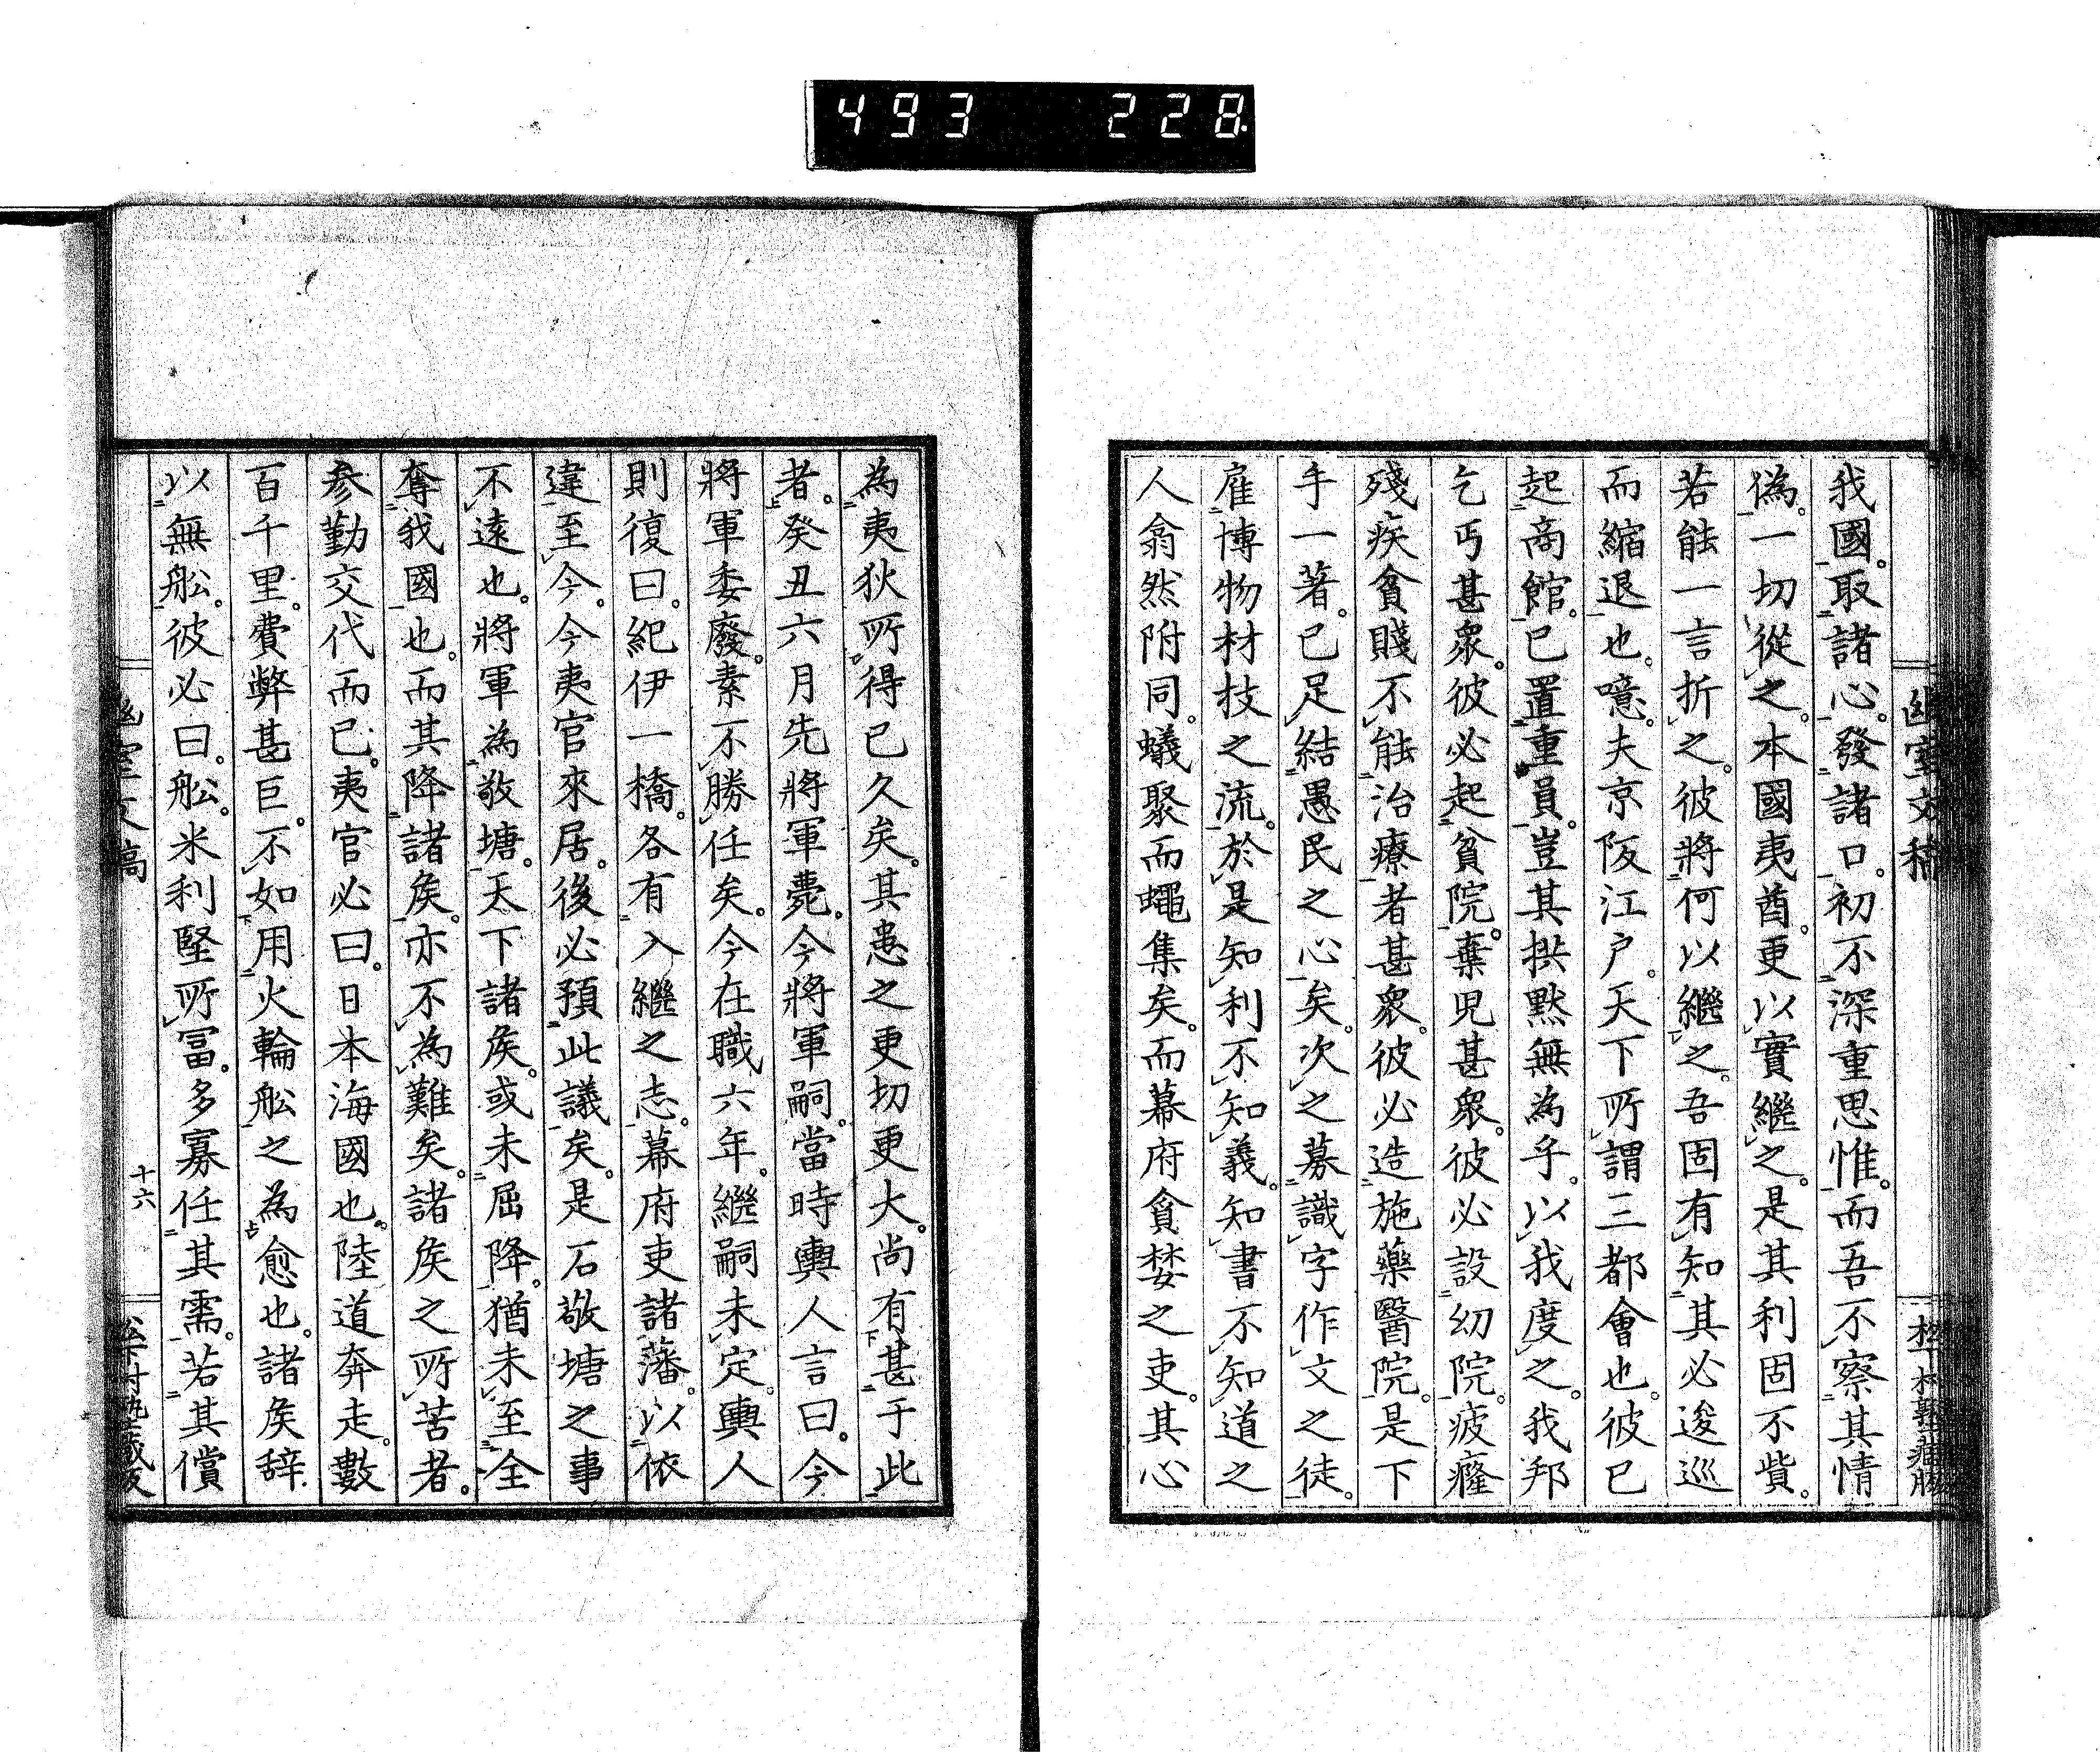 493 228
我國。取諸心。發諸口。初不深重思惟。而吾不察其情
偽。一切從之。本國夷酋。更以實繼之。是其利固不貲。
若能一言折之。彼將何以繼之。吾固有知其必逡巡
而縮退也。噫。夫京阪江戶。天下所謂三都會也。彼已
起商館。已置重員。豈其拱默無為乎。以我度之。我邦
乞丐甚衆。彼必起貧院。棄児甚衆。彼必設幼院。疲癃
殘疾貧賤不能治療者甚衆。彼必造施藥醫院。是下
手一著。已足結愚民之心矣。次之募識字作文之徒。
雇博物材技之流。於是知利不知義。知書不知道之
人翕然附同。蟻聚而蠅集矣。而幕府貪婪之吏。其心
為夷狄所得已久矣。其患之更切更大。尚有甚于此
者。癸丑六月先將軍薨。今將軍嗣。當時輿人言曰。今
將軍委廢。素不勝任矣。今在職六年。繼嗣未定。輿人
則復曰。紀伊一橋。各有入繼之志。幕府吏諸藩。以依
違至今。今夷官來居。後必預此議矣。是石敬塘之事
不遠也。將軍為敬塘。天下諸矦。或未屈降。猶未至全
奪我國也。而其降諸矦。亦不為難矣。諸矦之所苦者。
参勤交代而已。夷官必曰。日本海國也。陸道奔走。數
百千里。費弊甚巨。不如用火輪舩之為愈也。諸矦辞
以無舩。彼必曰。舩。米利堅所冨。多寡任其需。若其償
幽室文稿
十六